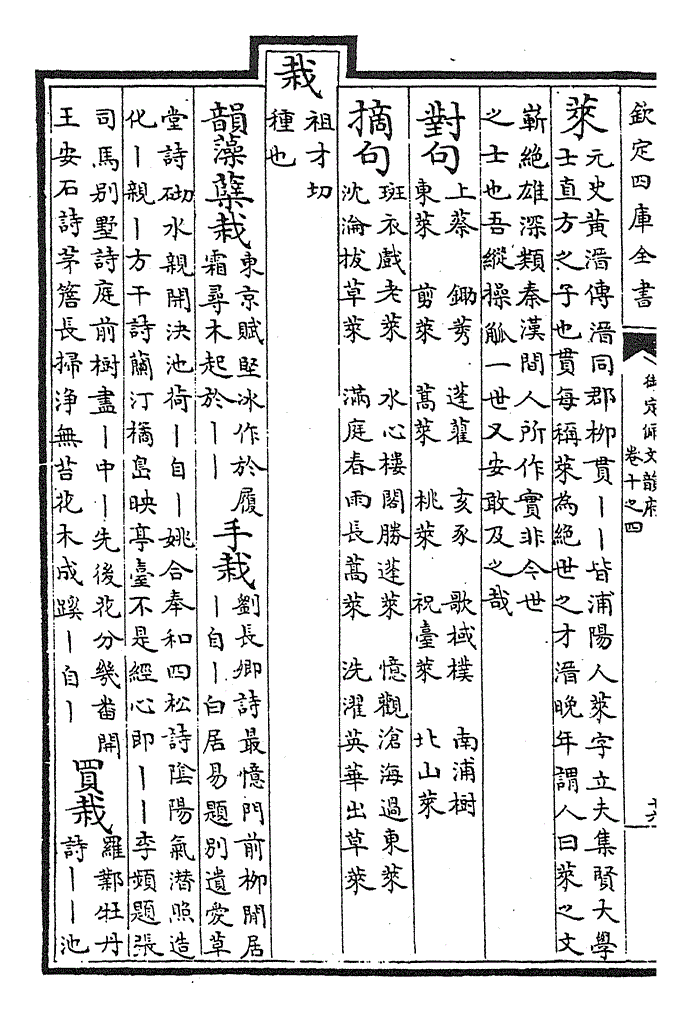 欽定四庫全書
御定佩文韻府
卷十之四
十六
萊
元史黄溍傳溍同郡柳貫丨丨皆浦陽人萊字立夫集賢大學
士直方之子也貫每稱萊為絶世之才溍晚年謂人曰萊之文
嶄絶雄深類秦漢間人所作實非今世
之士也吾縱操觚一世又安敢及之哉
對句
上蔡 鋤莠 蓬藋 亥豕 歌棫樸 南浦樹
東萊 剪萊 蒿萊 桃萊 祝臺萊 北山萊
摘句
斑衣戲老萊 水心樓閣勝蓬萊 憶觀滄海過東萊
沈淪拔草萊 滿庭春雨長蒿萊 洗濯英華出草萊
栽
祖才切
種也
韻藻
蘖栽
東京賦堅冰作於履
霜尋木起於丨丨
手栽
劉長卿詩最憶門前柳閒居
丨自丨白居易題別遺愛草
堂詩砌水親開決池荷丨自丨姚合奉和四松詩陰陽氣潛照造
化丨親丨方干詩蘭汀橘島映亭臺不是經心即丨丨李頻題張
司馬別墅詩庭前樹盡丨中丨先後花分幾畨開
王安石詩茅簷長掃淨無苔花木成蹊丨自丨
買栽
羅鄴牡丹
詩丨丨池